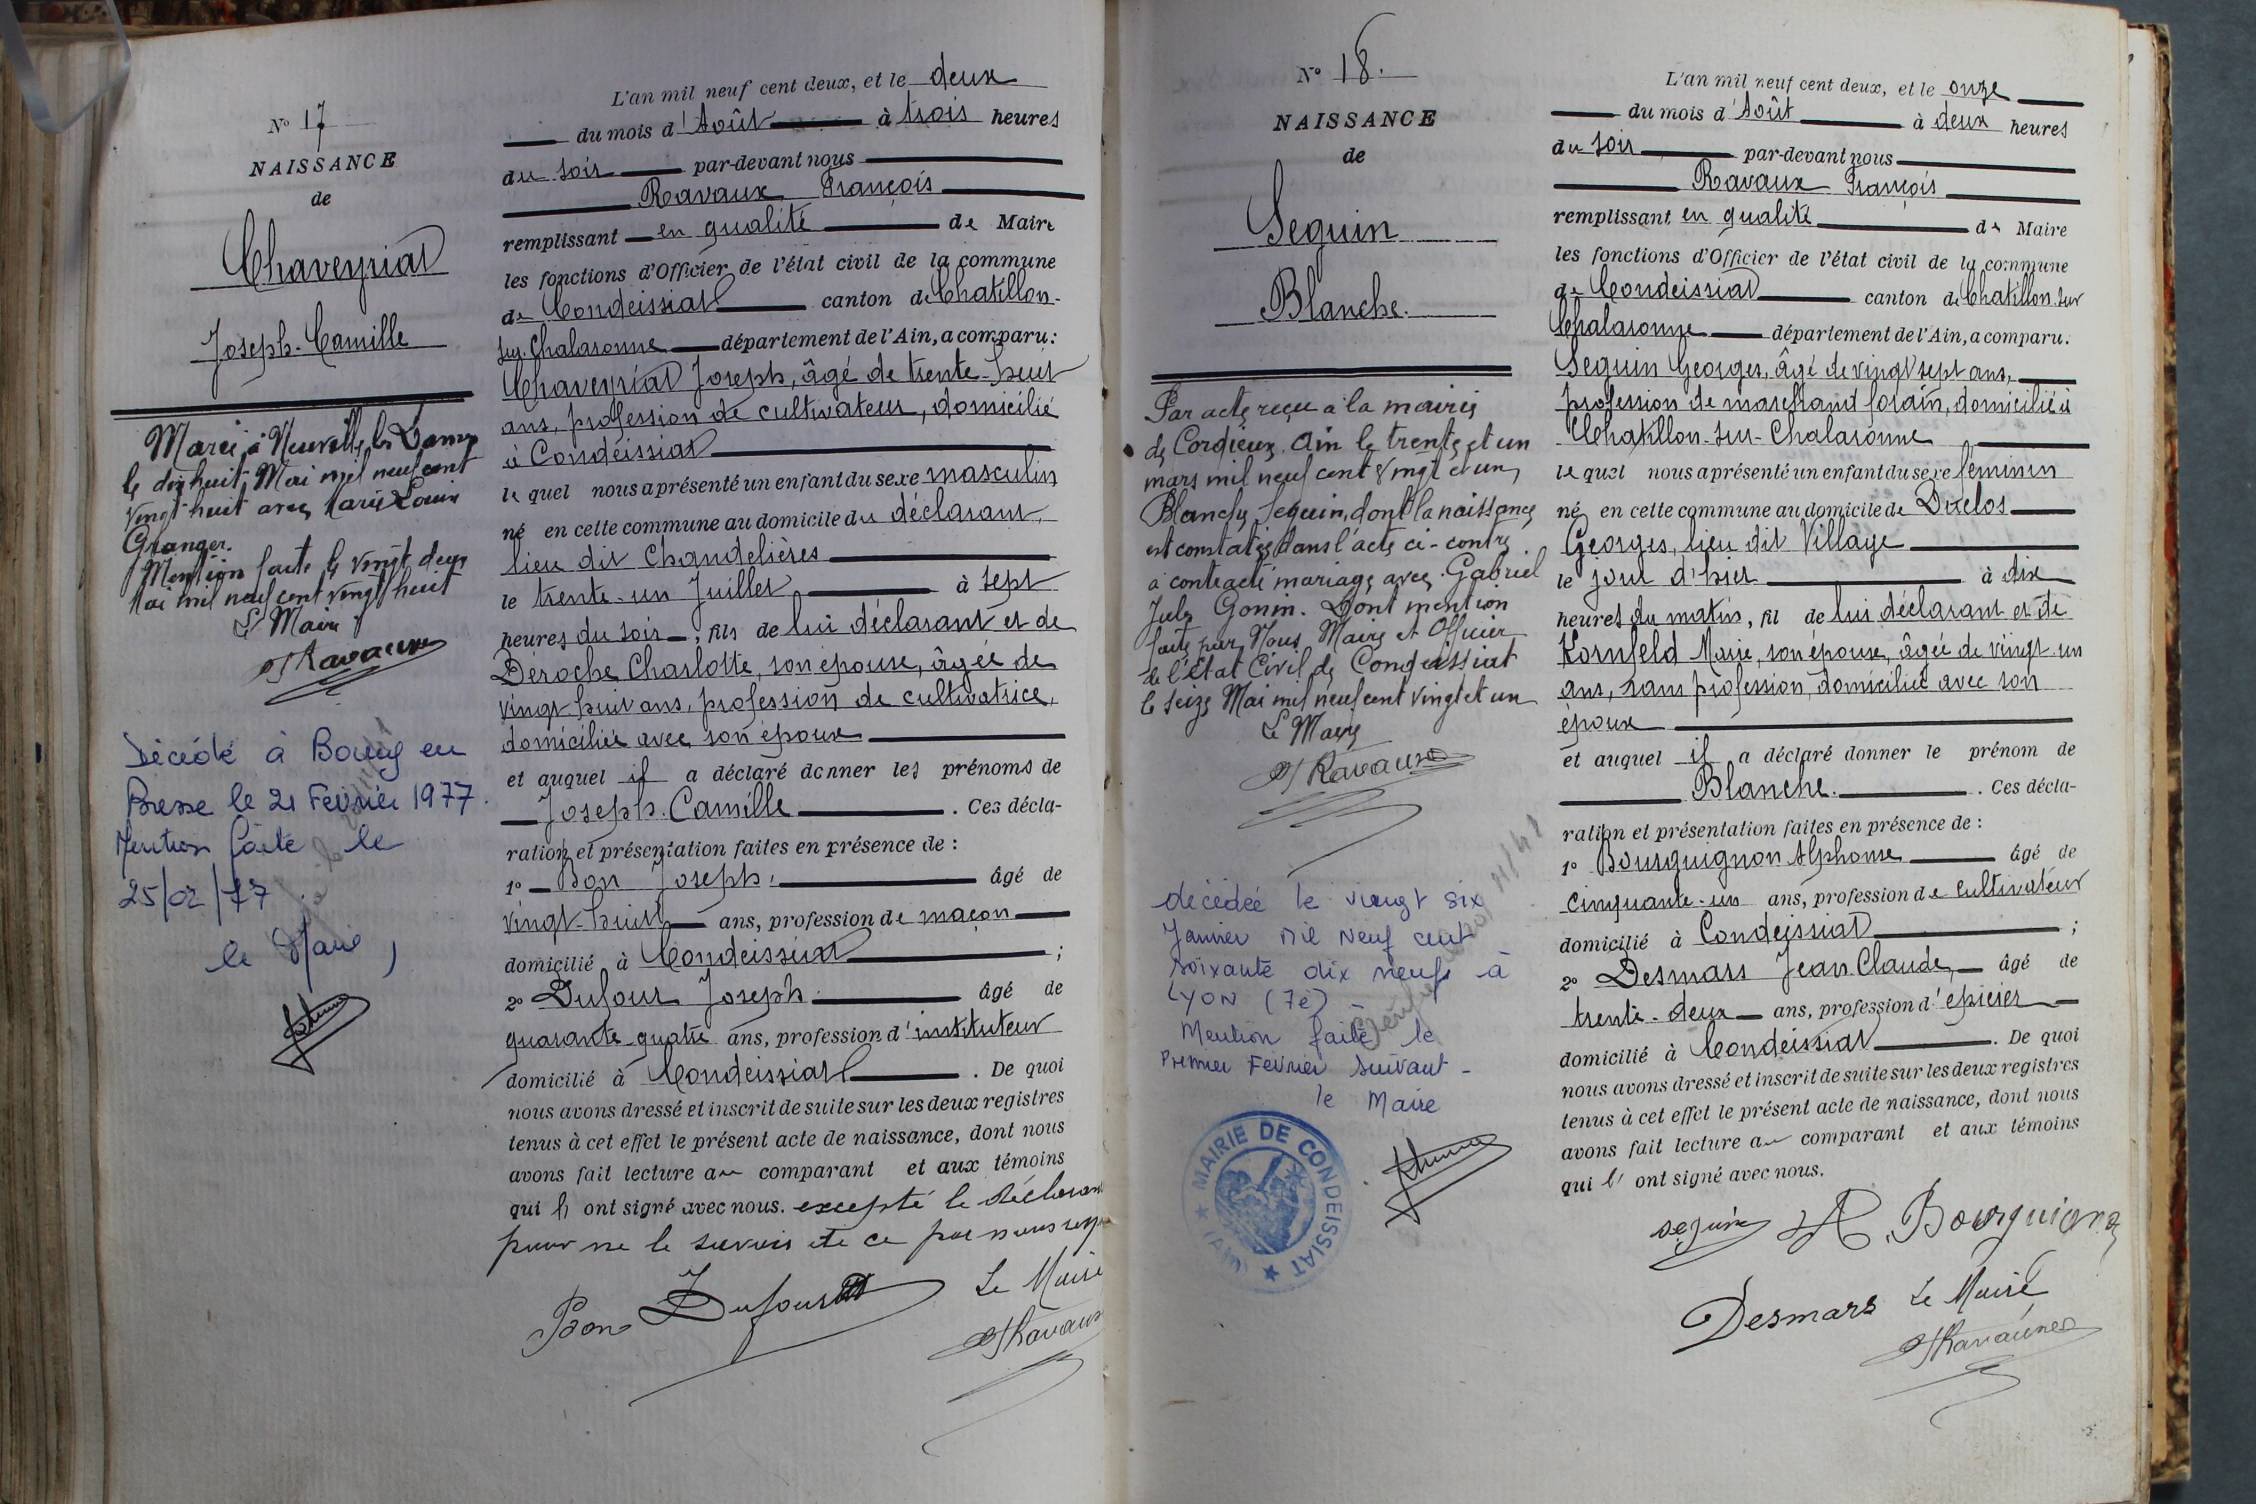 N° 17
NAISSANCE
de
Chaveyriat
Joseph-Camille
Marié à Neuville les Dames
le dix huit Mai mil neuf cent
vingt huit avec Marie Louise
Granger.
Mention faite le vingt deux
Mai mil neuf cent vingt huit
Le Maire
Ravaux
Décédé à Bourg en
Bresse le 21 Février 1977.
Mention faite le
25/02/77
le Maire,
L'an mil neuf cent deux, et le deux
du mois d'Août à trois heures
du soir par-devant nous
Ravaux François
remplissant en qualité de Maire
les fonctions d'Officier de l'état civil de la commune
de Condeissiat canton de Chatillon-
sur-Chalaronne département de l'Ain, a comparu:
Chaveyriat Joseph, âgé de trente-huit
ans, profession de cultivateur, domicilié
à Condeissiat
le quel nous a présenté un enfant du sexe masculin
né en cette commune au domicile du déclarant,
lieu dit Chandelières
le trente-un Juillet à sept
heures du soir, fils de lui déclarant et de
Deroche Charlotte, son épouse, âgée de
vingt huit ans, profession de cultivatrice,
domiciliée avec son époux
et auquel il a déclaré donner les prénoms de
Joseph-Camille. Ces décla-
ration et présentation faites en présence de :
1° Bon Joseph, âgé de
vingt-huit ans, profession de maçon
domicilié à Condeissiat ;
2° Dufour Joseph âgé de
quarante-quatre ans, profession d'instituteur
domicilié à Condeissiat. De quoi
nous avons dressé et inscrit de suite sur les deux registres
tenus à cet effet le présent acte de naissance, dont nous
avons fait lecture au comparant et aux témoins
qui l' ont signé avec nous. excepté le déclarant
pour ne le savoir de ce par nous requis
Bon Dufour Le Maire
Ravaux
N° 18.
NAISSANCE
de
Seguin
Blanche.
Par acte reçu à la mairie
de Cordieux Ain le trente et un
mars mil neuf cent vingt et un,
Blanche Seguin, dont la naissance
est constatée dans l'acte ci-contre
a contracté mariage avec Gabriel
Jules Gonin. Dont mention
faite par Nous, Maire et Officier
de l'Etat Civil de Condeissiat
le seize Mai mil neuf cent vingt et un
Le Maire
Ravaux
décédée le vingt six
Janvier Mil Neuf cent
soixante dix neuf à
LYON (7è) -
Mention faite le
Premier Février suivant -
le Maire
MAIRIE DE CONDEISSIAT
(AIN)
L'an mil neuf cent deux, et le onze
du mois d'Août à deux heures
du soir par-devant nous
Ravaux François
remplissant en qualité de Maire
les fonctions d'Officier de l'état civil de la commune
de Condeissiat canton de Chatillon-sur
Chalaronne département de l'Ain, a comparu.
Seguin Georges, âgé de vingt sept ans,
profession de marchand forain, domicilié à
Chatillon-sur-Chalaronne
le quel nous a présenté un enfant du sexe féminin
né en cette commune au domicile de Duclos
Georges, lieu dit Village
le jour d'hier à dix
heures du matin, fil de lui déclarant et de
Kornfeld Marie, son épouse, âgée de vingt-un
ans, sans profession, domiciliée avec son
époux
et auquel il a déclaré donner le prénom de
Blanche. Ces décla-
ration et présentation faites en présence de :
1° Bourguignon Alphonse âgé de
cinquante-un ans, profession de cultivateur
domicilié à Condeissiat ;
2° Desmars Jean Claude, âgé de
trente-deux ans, profession d'épicier
domicilié à Condeissiat. De quoi
nous avons dressé et inscrit de suite sur les deux registres
tenus à cet effet le présent acte de naissance, dont nous
avons fait lecture au comparant et aux témoins
qui l' ont signé avec nous.
Seguin A. Bourguignon
Desmars Le Maire
Ravaux